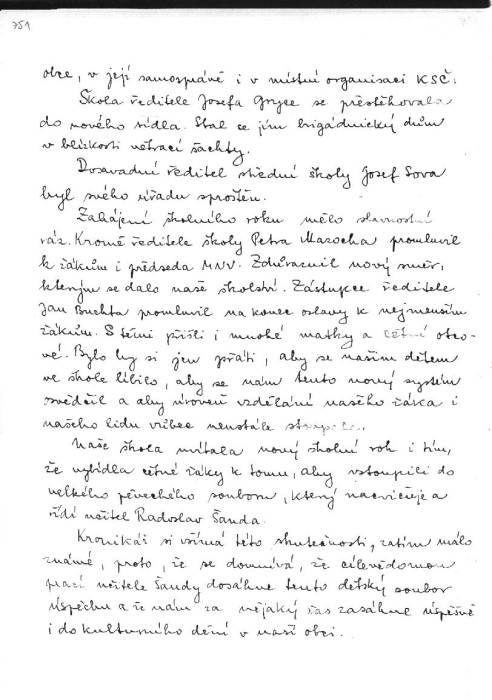 751
obce, v její samosprávě i v místní organisaci KSČ.
Škola ředitele Josefa Gryce se přestěhovala
do nového sídla. Stal se jím brigádnický dům
v blízkosti větrací šachty.
Dosavadní ředitel střední školy Josef Sova
byl svého úřadu sproštěn.
Zahájení školního roku mělo slavnostní
ráz. Kromě ředitele školy Petra Mazocha promluvil
k žákům i předseda MNV. Zdůraznil nový směr,
kterým se dalo naše školství. Zástupce ředitele
Jan Buchta promluvil na konec oslavy k nejmenším
žákům. S těmi přišli i mnohé matky a četní otco-
vé. Bylo by si jen přáti, aby se našim dětem
ve škole líbilo, aby se nám tento nový systém
osvědčil a aby úroveň vzdělání našeho žáka i
našeho lidu vůbec neustále stoupala.
Naše škola uvítala nový školní rok i tím,
že vybídla četné žáky k tomu, aby vstoupili do
velkého pěveckého souboru, který nacvičuje a
řídí učitel Radoslav Šanda.
Kronikář si všímá této skutečnosti, zatím málo
známé, proto, že se domnívá, že cílevědomou
prací učitele Šandy dosáhne tento dětský soubor
úspěchu a že nám za nějaký čas zasáhne úspěšně
i do kulturního dění v naší obci.